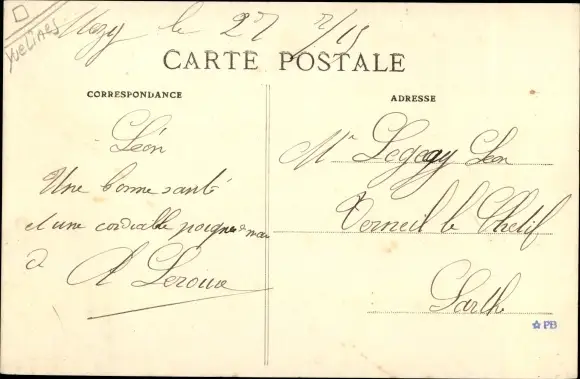 Yvelines
Mezy le 27 7/15
CARTE POSTALE
CORRESPONDANCE
ADRESSE
Léon
Une bonne santé
et une cordialle poignée main
de
A Leroux
Mr Legogy Léon
Verneil le Chétif
Sarthe
PB